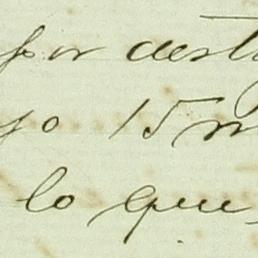 por dest
yo 15 m
lo que